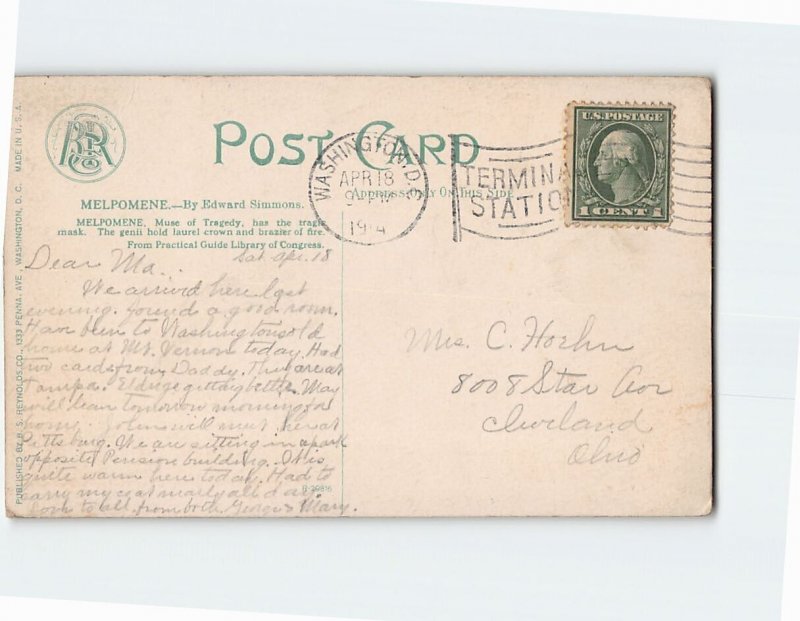 POST CARD
ADDRESS ONLY ON THIS SIDE
MELPOMENE.—By Edward Simmons.
MELPOMENE, Muse of Tragedy, has the tragic
mask. The genii hold laurel crown and brazier of fire.
From Practical Guide Library of Congress.
PUBLISHED BY B. S. REYNOLDS CO., 1333 PENNA. AVE., WASHINGTON, D. C. MADE IN U. S. A.
WASHINGTON, D.C.
APR 18
TERMINA
STATIO
U.S. POSTAGE
1 CENT 1
Sat. Apr. 18
Dear Ma.
We arrived here last
evening. found a good room.
Have been to Washingtons old
home at Mt. Vernon today. Had
two cards from Daddy. They are at
Tampa. getting better. May
will leave tomorrow morning for
home. John will meet her at
Pittsburg. We are sitting in a park
opposite Pension building. It is
quite warm here today. Had to
carry my coat nearly all day.
Love to all from both George & Mary.
Mrs. C. Hoehn
8008 Star Ave
Cleveland
Ohio